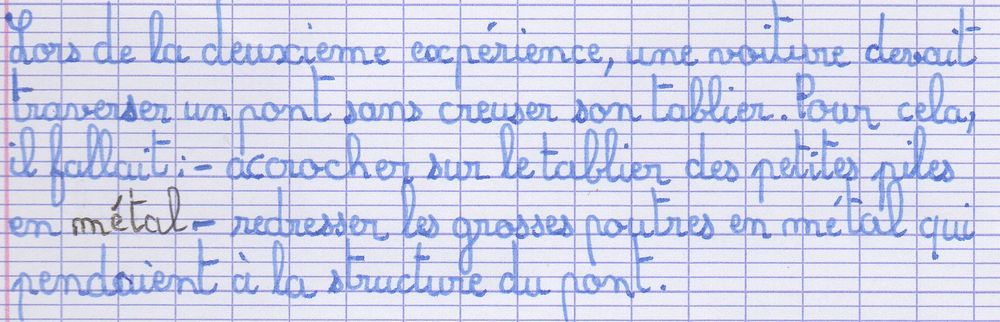 Lors de la deuxcième expérience, une voiture devait
traverser un pont sans creuser son tablier. Pour cela,
il fallait : - accrocher sur le tablier des petites piles
en métal - redresser les grosses poutres en métal qui
pendaient à la structure du pont.